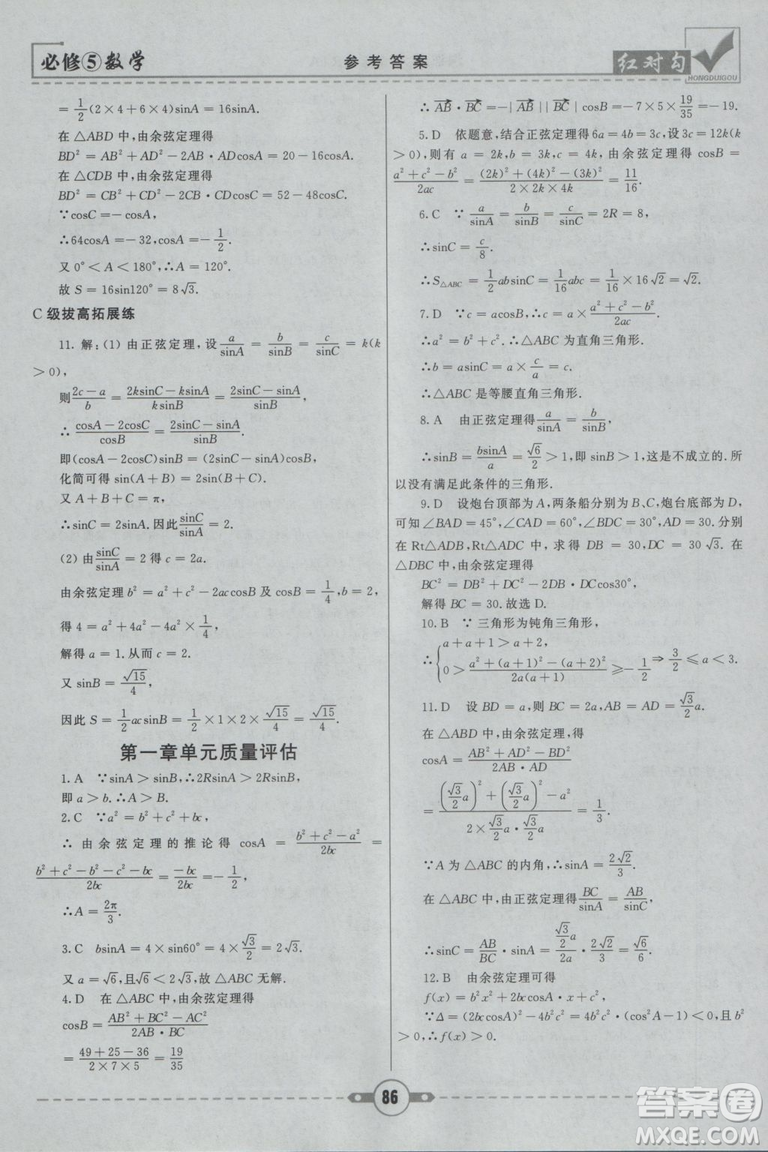 必修⑤数学
参考答案
红对勾
HONGDUIGOU
=1/2(2×4+6×4)sinA=16sinA.
在△ABD中,由余弦定理得
BD²=AB²+AD²-2AB·ADcosA=20-16cosA.
在△CDB中,由余弦定理得
BD²=CB²+CD²-2CB·CDcosC=52-48cosC.
∵cosC=-cosA,
∴64cosA=-32,cosA=-1/2.
又0°<A<180°,∴A=120°.
故S=16sin120°=8√3.
C级拔高拓展练
11.解:(1)由正弦定理,设a/sinA=b/sinB=c/sinC=k(k
>0),
则(2c-a)/b=(2ksinC-ksinA)/(ksinB)=(2sinC-sinA)/sinB.
∴(cosA-2cosC)/cosB=(2sinC-sinA)/sinB.
即(cosA-2cosC)sinB=(2sinC-sinA)cosB,
化简可得sin(A+B)=2sin(B+C).
又A+B+C=π,
∴sinC=2sinA.因此sinC/sinA=2.
(2)由sinC/sinA=2得c=2a.
由余弦定理b²=a²+c²-2accosB及cosB=1/4,b=2,
得4=a²+4a²-4a²×1/4,
解得a=1.从而c=2.
又sinB=√15/4,
因此S=1/2acsinB=1/2×1×2×√15/4=√15/4.
第一章单元质量评估
1.A ∵sinA>sinB,∴2RsinA>2RsinB,
即a>b.∴A>B.
2.C ∵a²=b²+c²+bc,
∴由余弦定理的推论得cosA=(b²+c²-a²)/2bc=
(b²+c²-b²-c²-bc)/2bc=-bc/2bc=-1/2,
∴A=2π/3.
3.C bsinA=4×sin60°=4×√3/2=2√3.
又a=√6,且√6<2√3,故△ABC无解.
4.D 在△ABC中,由余弦定理得
cosB=(AB²+BC²-AC²)/(2AB·BC)
=(49+25-36)/(2×7×5)=19/35
∴AB·BC=-|AB||BC|cosB=-7×5×19/35=-19.
5.D 依题意,结合正弦定理得6a=4b=3c,设3c=12k(k
>0),则有a=2k,b=3k,c=4k,由余弦定理得cosB=
(a²+c²-b²)/2ac=((2k)²+(4k)²-(3k)²)/(2×2k×4k)=11/16.
6.C ∵a/sinA=b/sinB=c/sinC=2R=8,
∴sinC=c/8.
∴S△ABC=1/2absinC=1/16abc=1/16×16√2=√2.
7.D ∵c=acosB,∴c=a×(a²+c²-b²)/2ac.
∴a²=b²+c².∴△ABC为直角三角形.
∴b=asinC=a×c/a=c.
∴△ABC是等腰直角三角形.
8.A 由正弦定理得a/sinA=b/sinB,
∴sinB=bsinA/a=√6/2>1,即sinB>1,这是不成立的.所
以没有满足此条件的三角形.
9.D 设炮台顶部为A,两条船分别为B、C,炮台底部为D,
可知∠BAD=45°,∠CAD=60°,∠BDC=30°,AD=30.分别
在Rt△ADB,Rt△ADC中,求得DB=30,DC=30√3.在
△DBC中,由余弦定理得
BC²=DB²+DC²-2DB·DCcos30°,
解得BC=30.故选D.
10.B ∵三角形为钝角三角形,
∴{a+a+1>a+2,
0>(a²+(a+1)²-(a+2)²)/(2a(a+1))≥-1/2⇒3/2≤a<3.
11.D 设BD=a,则BC=2a,AB=AD=√3/2a.
在△ABD中,由余弦定理得
cosA=(AB²+AD²-BD²)/(2AB·AD)
=((√3/2a)²+(√3/2a)²-a²)/(2×√3/2a·√3/2a)=1/3.
∵A为△ABC的内角,∴sinA=2√2/3.
在△ABC中,由正弦定理得BC/sinA=AB/sinC.
∴sinC=AB/BC·sinA=(√3/2a)/2a·2√2/3=√6/6.
12.B 由余弦定理可得
f(x)=b²x²+2bccosA·x+c²,
∵Δ=(2bccosA)²-4b²c²=4b²c²·(cos²A-1)<0,且
b²>0,∴f(x)>0.
86
答案圈
MXQE.COM